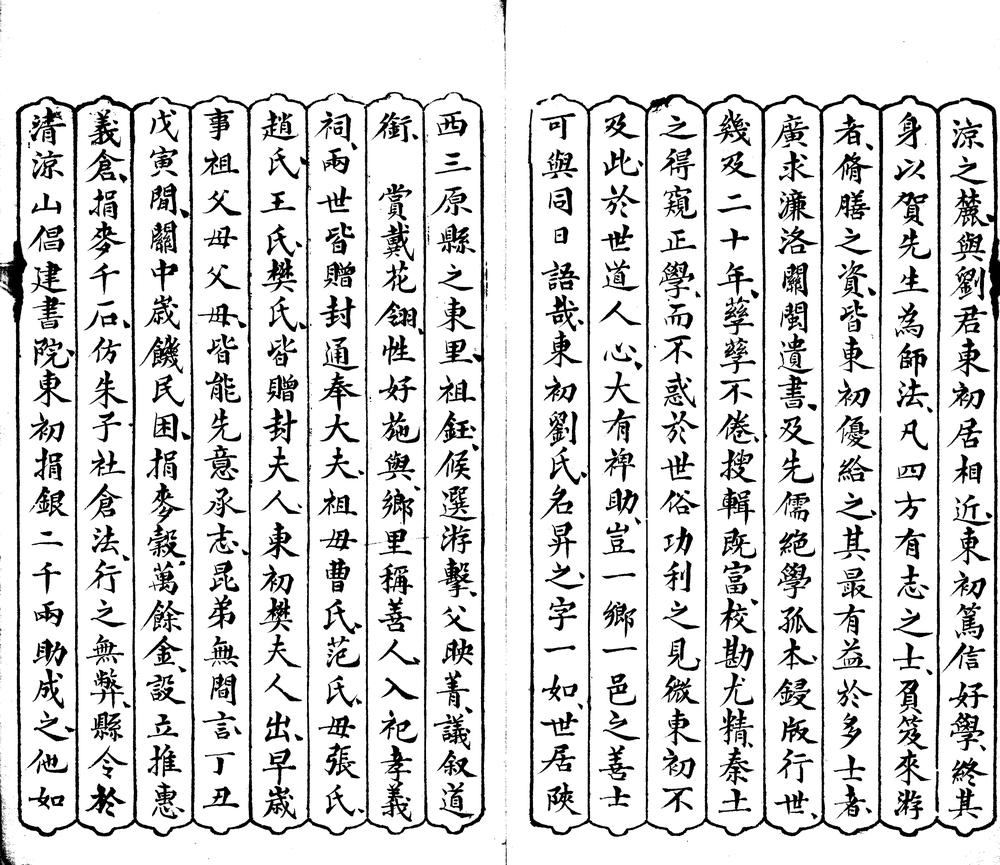 涼之麓、與劉君東初居相近、東初篤信好學、終其
身以賀先生為師法、凡四方有志之士、負笈來游
者、脩膳之資、皆東初優給之、其最有益於多士者、
廣求濂洛關閩遺書、及先儒絕學孤本、鋟版行世、
幾及二十年、孳孳不倦、搜輯既富、校勘尤精、秦士
之得窺正學、而不惑於世俗功利之見、微東初不
及此、於世道人心、大有裨助、豈一鄉一邑之善士
可與同日語哉、東初劉氏、名昇之、字一如、世居陝
西三原縣之東里、祖鈺、候選游擊、父映菁、議叙道
銜　賞戴花翎、性好施與、鄉里稱善人、入祀孝義
祠、兩世皆贈封通奉大夫、祖母曹氏、范氏、母張氏、
趙氏、王氏、樊氏、皆贈封夫人、東初樊夫人出、早歲
事祖父母父母、皆能先意承志、昆弟無間言、丁丑
戊寅間、關中歲饑民困、捐麥穀萬餘金、設立推惠
義倉、捐麥千石、仿朱子社倉法、行之無弊、縣令於
清涼山倡建書院、東初捐銀二千兩助成之、他如